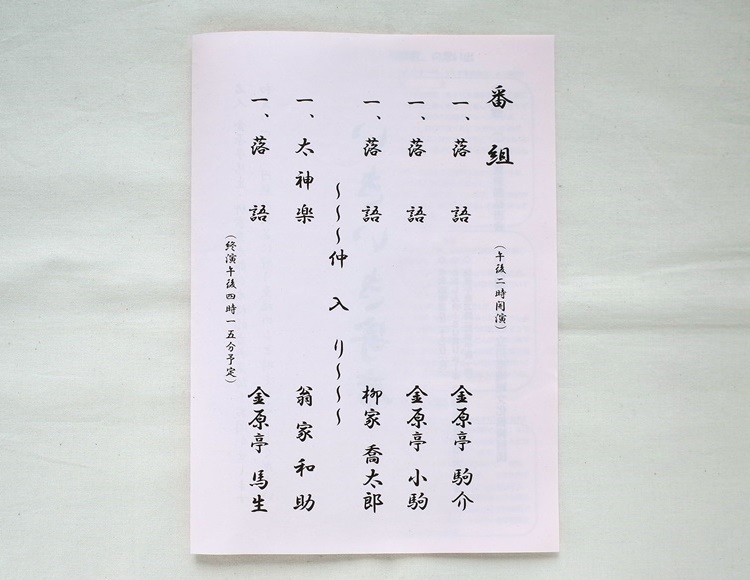 番組
（午後二時開演）
一、落語　金原亭 駒介
一、落語　金原亭 小駒
一、落語　柳家 喬太郎
～～～仲入り～～～
一、太神楽　翁家 和助
一、落語　金原亭 馬生
（終演午後四時一五分予定）